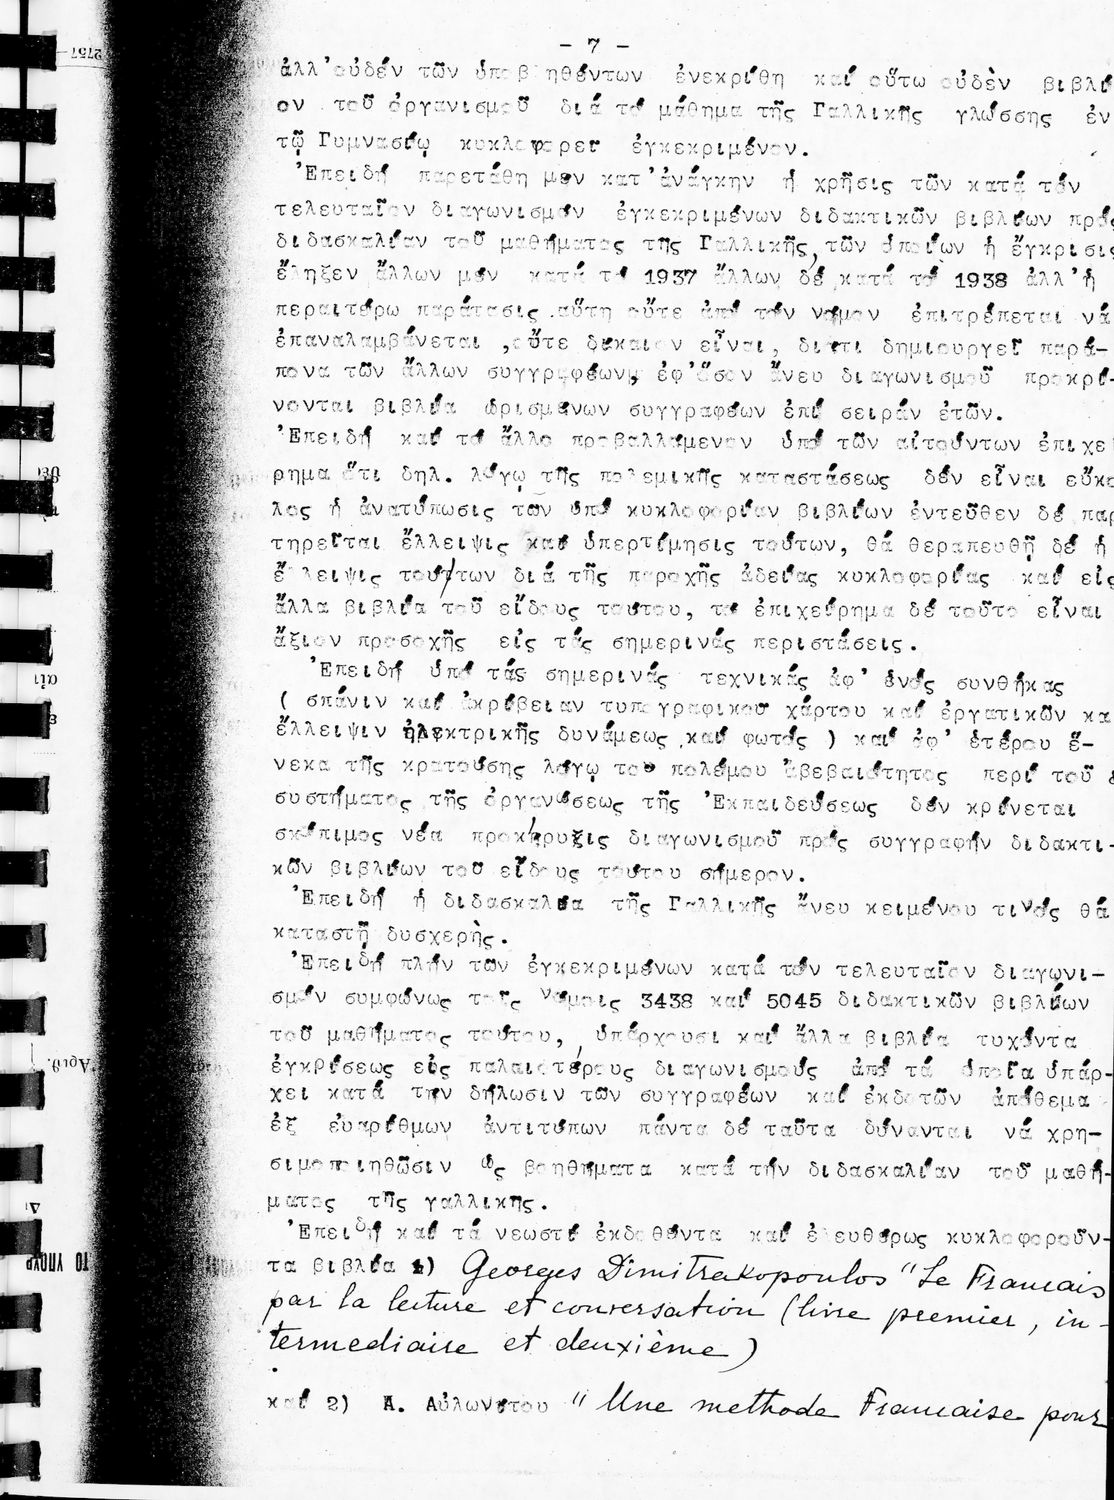 - 7 -
ἀλλ'οὐδέν τῶν ὑποβληθέντων ἐνεκρίθη καί οὕτω οὐδὲν βιβλί
ον τοῦ ὀργανισμοῦ διά τό μάθημα τῆς Γαλλικῆς γλώσσης ἐν
τῷ Γυμνασίῳ κυκλοφορεῖ ἐγκεκριμένον.
Ἐπειδή παρετάθη μέν κατ'ἀνάγκην ἡ χρῆσις τῶν κατά τόν
τελευταῖον διαγωνισμόν ἐγκεκριμένων διδακτικῶν βιβλίων πρός
διδασκαλίαν τοῦ μαθήματος τῆς Γαλλικῆς, τῶν ὁποίων ἡ ἔγκρισις
ἔληξεν ἄλλων μέν κατά τό 1937 ἄλλων δέ κατά τό 1938 ἀλλ'ἡ
περαιτέρω παράτασις αὕτη οὔτε ἀπό τόν νόμον ἐπιτρέπεται νά
ἐπαναλαμβάνεται ,οὔτε δίκαιον εἶναι, διότι δημιουργεῖ παρά-
πονα τῶν ἄλλων συγγραφέων, ἐφ'ὅσον ἄνευ διαγωνισμοῦ προκρί-
νονται βιβλία ὡρισμένων συγγραφέων ἐπί σειράν ἐτῶν.
Ἐπειδή καί τό ἄλλο προβαλλόμενον ὑπό τῶν αἰτούντων ἐπιχεί
ρημα ὅτι δηλ. λόγῳ τῆς πολεμικῆς καταστάσεως δέν εἶναι εὔκο
λος ἡ ἀνατύπωσις τῶν ὑπό κυκλοφορίαν βιβλίων ἐντεῦθεν δέ παρ
τηρεῖται ἔλλειψις καί ὑπερτίμησις τούτων, θά θεραπευθῇ δέ ἡ
ἔλλειψις τούτων διά τῆς παροχῆς ἀδείας κυκλοφορίας καί εἰς
ἄλλα βιβλία τοῦ εἴδους τούτου, τό ἐπιχείρημα δέ τοῦτο εἶναι
ἄξιον προσοχῆς εἰς τάς σημερινάς περιστάσεις.
Ἐπειδή ὑπό τάς σημερινάς τεχνικάς ἀφ' ἑνός συνθήκας
( σπάνιν καί ἀκρίβειαν τυπογραφικοῦ χάρτου καί ἐργατικῶν κα
ἔλλειψιν ἠλεκτρικῆς δυνάμεως καί φωτός ) καί ἀφ' ἑτέρου ἕ-
νεκα τῆς κρατούσης λόγῳ τοῦ πολέμου ἀβεβαιότητος περί τοῦ
συστήματος τῆς ὀργανώσεως τῆς Ἐκπαιδεύσεως δέν κρίνεται
σκόπιμος νέα προκήρυξις διαγωνισμοῦ πρός συγγραφήν διδακτι-
κῶν βιβλίων τοῦ εἴδους τούτου σήμερον.
Ἐπειδή ἡ διδασκαλία τῆς Γαλλικῆς ἄνευ κειμένου τινός θά
καταστῇ δυσχερὴς.
Ἐπειδή πλήν τῶν ἐγκεκριμένων κατά τόν τελευταῖον διαγωνι-
σμόν συμφώνως τοῖς νόμοις 3438 καί 5045 διδακτικῶν βιβλίων
τοῦ μαθήματος τούτου, ὑπάρχουσι καί ἄλλα βιβλία τυχόντα
ἐγκρίσεως εἰς παλαιοτέρους διαγωνισμούς ἀπό τά ὁποῖα ὑπάρ-
χει κατά τήν δήλωσιν τῶν συγγραφέων καί ἐκδοτῶν ἀπόθεμα
ἐξ εὐαρίθμων ἀντιτύπων πάντα δέ ταῦτα δύνανται νά χρη-
σιμοποιηθῶσιν ὡς βοηθήματα κατά τήν διδασκαλίαν τοῦ μαθή-
ματος τῆς γαλλικης.
Ἐπειδή καί τά νεωστί ἐκδοθέντα καί ἐλευθέρως κυκλοφοροῦν-
τα βιβλία 1) Georges Dimitrakopoulos "Le Francais
par la lecture et conversation (livre premier, in-
termediaire et deuxième)
καί 2) Α. Αὐλωνίτου " Une methode Francaise pour